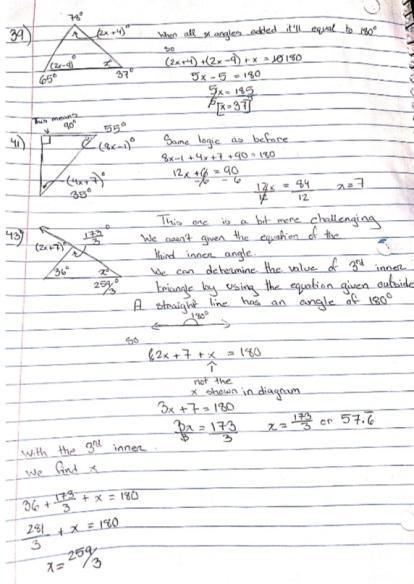 39)
78°
(2x+4)°
(2x-9)°
x
65°
37°
when all x angles added it'll equal to 180°
so
(2x+4)+(2x-9)+x = 180
5x-5 = 180
5x = 185
[x=37]
41)
This means
90°
55°
(8x-1)°
(4x+7)°
35°
Same logic as before
8x-1+4x+7+90 = 180
12x+6 = 90
-6 -6
12x = 84
12 12
x=7
43)
This one is a bit more challenging
We aren't given the equation of the
third inner angle.
We can determine the value of 3rd inner
triangle by using the equation given outside
A straight line has an angle of 180°
(2x+7)°
173/3°
36°
x°
259/3°
180°
so
2x+7+x = 180
not the
x shown in diagram
3x+7 = 180
3x = 173
3 3
x = 173/3 or 57.6̅
With the 3rd inner
We find x
36 + 173/3 + x = 180
281/3 + x = 180
x = 259/3